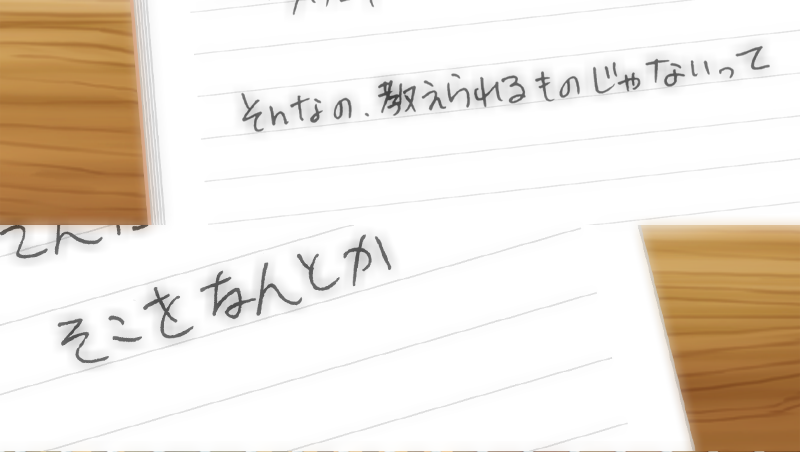 そんなの、教えられるものじゃないいって
そこをなんとか